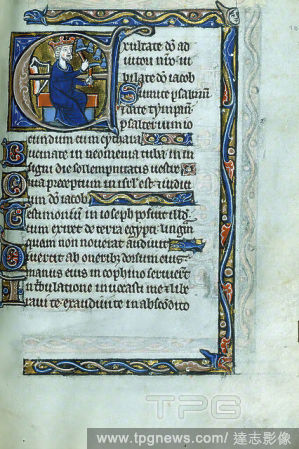 Exultate deo ad
iutori nro iu
bilate deo iacob
Sumite psalmu
date tympanu
psalterium io
cundum cum cythara
Bucinate in neomenia tuba in in
signi die sollempnitatis vestre
Quia preceptum in isrl est iudici
um deo iacob
Testimonium in ioseph posuit illud
cum exiret de terra egypti lingua
quam non noverat audivit
Divertit ab oneribz dorsum eius
manus eius in cophino servierut
In tribulatione invocasti me et libe
ravi te exaudivi te in abscodito
TPG
www.tpgnews.com / 達志影像